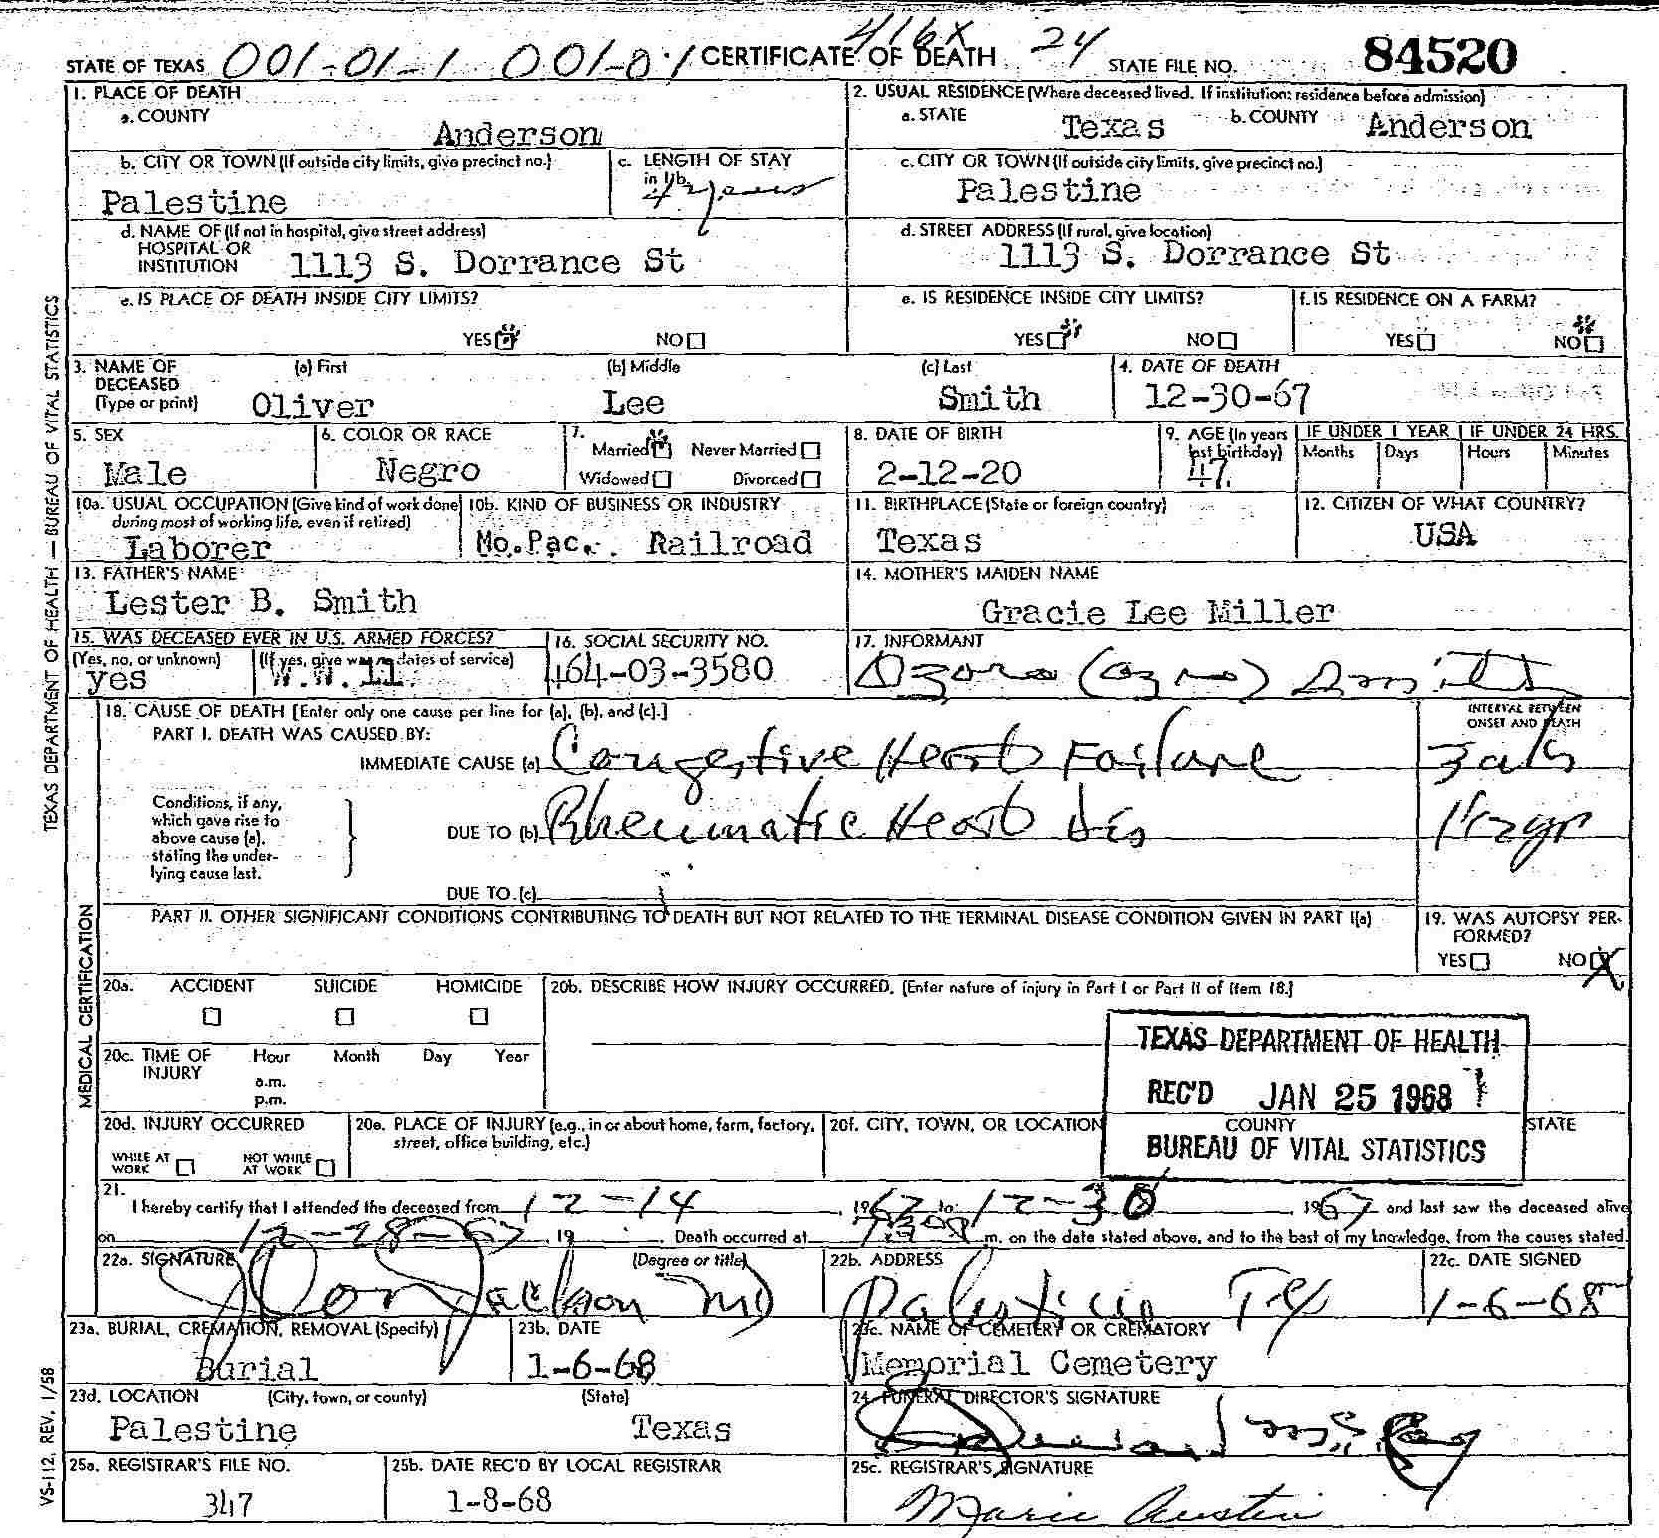 416X 24
STATE OF TEXAS 001-01-1 001-0-1 CERTIFICATE OF DEATH STATE FILE NO. 84520
1. PLACE OF DEATH
a. COUNTY
Anderson
2. USUAL RESIDENCE (Where deceased lived. If institution: residence before admission)
a. STATE Texas b. COUNTY Anderson
b. CITY OR TOWN (If outside city limits, give precinct no.)
Palestine
c. LENGTH OF STAY
in 1b.
4 years
c. CITY OR TOWN (If outside city limits, give precinct no.)
Palestine
d. NAME OF (If not in hospital, give street address)
HOSPITAL OR
INSTITUTION 1113 S. Dorrance St
d. STREET ADDRESS (If rural, give location)
1113 S. Dorrance St
e. IS PLACE OF DEATH INSIDE CITY LIMITS?
YES NO
e. IS RESIDENCE INSIDE CITY LIMITS?
YES NO
f. IS RESIDENCE ON A FARM?
YES NO
3. NAME OF
DECEASED
(Type or print)
(a) First (b) Middle (c) Last
Oliver Lee Smith
4. DATE OF DEATH
12-30-67
5. SEX
Male
6. COLOR OR RACE
Negro
7.
Married Never Married
Widowed Divorced
8. DATE OF BIRTH
2-12-20
9. AGE (In years
last birthday)
47
IF UNDER 1 YEAR IF UNDER 24 HRS.
Months Days Hours Minutes
10a. USUAL OCCUPATION (Give kind of work done
during most of working life, even if retired)
Laborer
10b. KIND OF BUSINESS OR INDUSTRY
Mo.Pac. Railroad
11. BIRTHPLACE (State or foreign country)
Texas
12. CITIZEN OF WHAT COUNTRY?
USA
13. FATHER'S NAME
Lester B. Smith
14. MOTHER'S MAIDEN NAME
Gracie Lee Miller
15. WAS DECEASED EVER IN U.S. ARMED FORCES?
(Yes, no, or unknown) (If yes, give war or dates of service)
yes W.W. 11.
16. SOCIAL SECURITY NO.
464-03-3580
17. INFORMANT
Smith
18. CAUSE OF DEATH [Enter only one cause per line for (a), (b), and (c).]
PART I. DEATH WAS CAUSED BY:
INTERVAL BETWEEN
ONSET AND DEATH
IMMEDIATE CAUSE (a) Congestive Heart Failure
Conditions, if any,
which gave rise to
above cause (a),
stating the under-
lying cause last.
DUE TO (b) Rheumatic Heart Dis
DUE TO (c)
PART II. OTHER SIGNIFICANT CONDITIONS CONTRIBUTING TO DEATH BUT NOT RELATED TO THE TERMINAL DISEASE CONDITION GIVEN IN PART I(a)
19. WAS AUTOPSY PER-
FORMED?
YES NO X
20a. ACCIDENT SUICIDE HOMICIDE
20b. DESCRIBE HOW INJURY OCCURRED. (Enter nature of injury in Part I or Part II of item 18.)
20c. TIME OF
INJURY
Hour Month Day Year
a.m.
p.m.
TEXAS DEPARTMENT OF HEALTH
REC'D JAN 25 1968
BUREAU OF VITAL STATISTICS
20d. INJURY OCCURRED
WHILE AT
WORK
NOT WHILE
AT WORK
20e. PLACE OF INJURY (e.g., in or about home, farm, factory,
street, office building, etc.)
20f. CITY, TOWN, OR LOCATION COUNTY STATE
21.
I hereby certify that I attended the deceased from 12-14, 1967 to 12-30, 1967 and last saw the deceased alive
on 12-28-67, 19 . Death occurred at m. on the date stated above, and to the best of my knowledge, from the causes stated.
22a. SIGNATURE (Degree or title)
Jackson MD
22b. ADDRESS
Palestine Tex
22c. DATE SIGNED
1-6-68
23a. BURIAL, CREMATION, REMOVAL (Specify)
Burial
23b. DATE
1-6-68
23c. NAME OF CEMETERY OR CREMATORY
Memorial Cemetery
23d. LOCATION (City, town, or county) (State)
Palestine Texas
24. FUNERAL DIRECTOR'S SIGNATURE
25a. REGISTRAR'S FILE NO.
347
25b. DATE REC'D BY LOCAL REGISTRAR
1-8-68
25c. REGISTRAR'S SIGNATURE
Marie Austin
TEXAS DEPARTMENT OF HEALTH — BUREAU OF VITAL STATISTICS
MEDICAL CERTIFICATION
VS-112, REV. 1/58